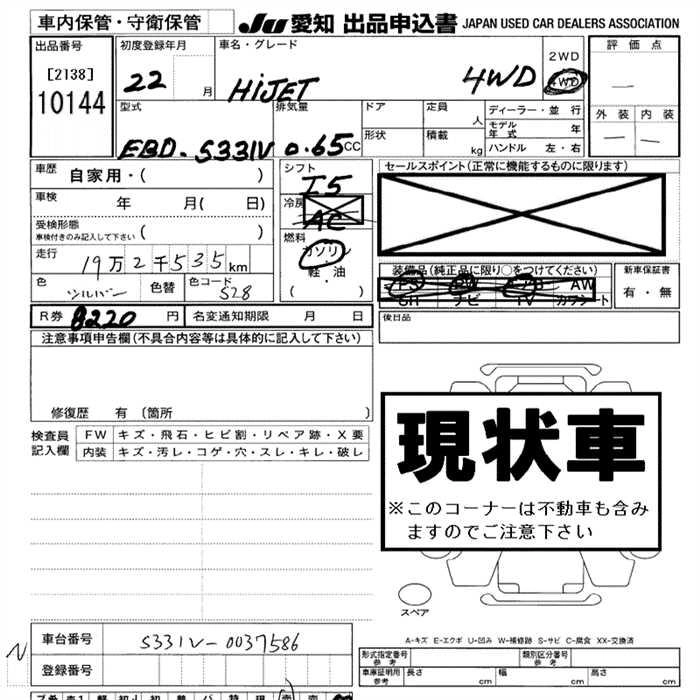 車内保管・守衛保管 JU 愛知 出品申込書 JAPAN USED CAR DEALERS ASSOCIATION
出品番号 [2138] 10144
初度登録年月 22 月
車名・グレード HiJET 4WD 2WD 4WD
評価点 —
外装 — 内装 —
型式 EBD-S331V 排気量 0.65 CC
ドア 定員 人
形状 積載 kg
ディーラー・並行
モデル年式 年
ハンドル 左・右
車歴 自家用・( )
車検 年 月( 日)
受検形態
車検付きのみ記入して下さい ( )
走行 19万2千535km
色 シルバー 色替 色コード S28
シフト I5
冷房 AC
燃料 ガソリン
軽・油
( )
セールスポイント(正常に機能するものに限ります)
装備品(純正品に限り○をつけてください)
PS PW エアB AW
SR ナビ TV カワシート
新車保証書
有・無
R券 8220 円 名変通知期限 月 日
後日品
注意事項申告欄(不具合内容等は具体的に記入して下さい)
修復歴 有(箇所 )
検査員記入欄 FW キズ・飛石・ヒビ割・リペア跡・X要
内装 キズ・汚レ・コゲ・穴・スレ・キレ・破レ
現状車
※このコーナーは不動車も含み
ますのでご注意下さい
スペア
A-キズ E-エクボ U-凹み W-補修跡 S-サビ C-腐食 XX-交換済
N 車台番号 S331V-0037586
登録番号
形式指定番号 参考 類別区分番号 参考
車庫証明用 参考 長さ cm 幅 cm 高さ cm